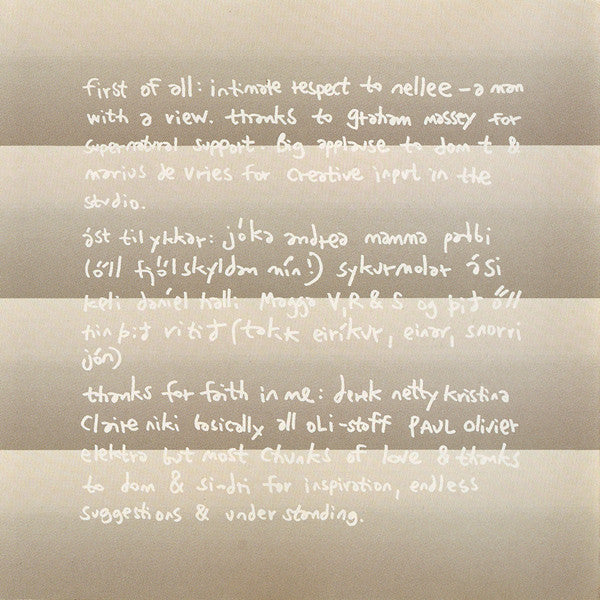 first of all: intimate respect to nellee – a man
with a view. thanks to graham massey for
supernatural support. Big applause to dom t &
marius de vries for creative input in the
studio.
ást til ykkar: jóka andrea mamma pabbi
(öll fjölskyldan mín!) sykurmolar ási
keli daníel halli Magga V,R & S og þið öll
hin þið vitið (takk eiríkur, einar, snorri
jón)
thanks for faith in me: derek netty kristina
Claire niki basically all OLI-staff PAUL olivier
elektra but most chunks of love & thanks
to dom & sindri for inspiration, endless
suggestions & understanding.